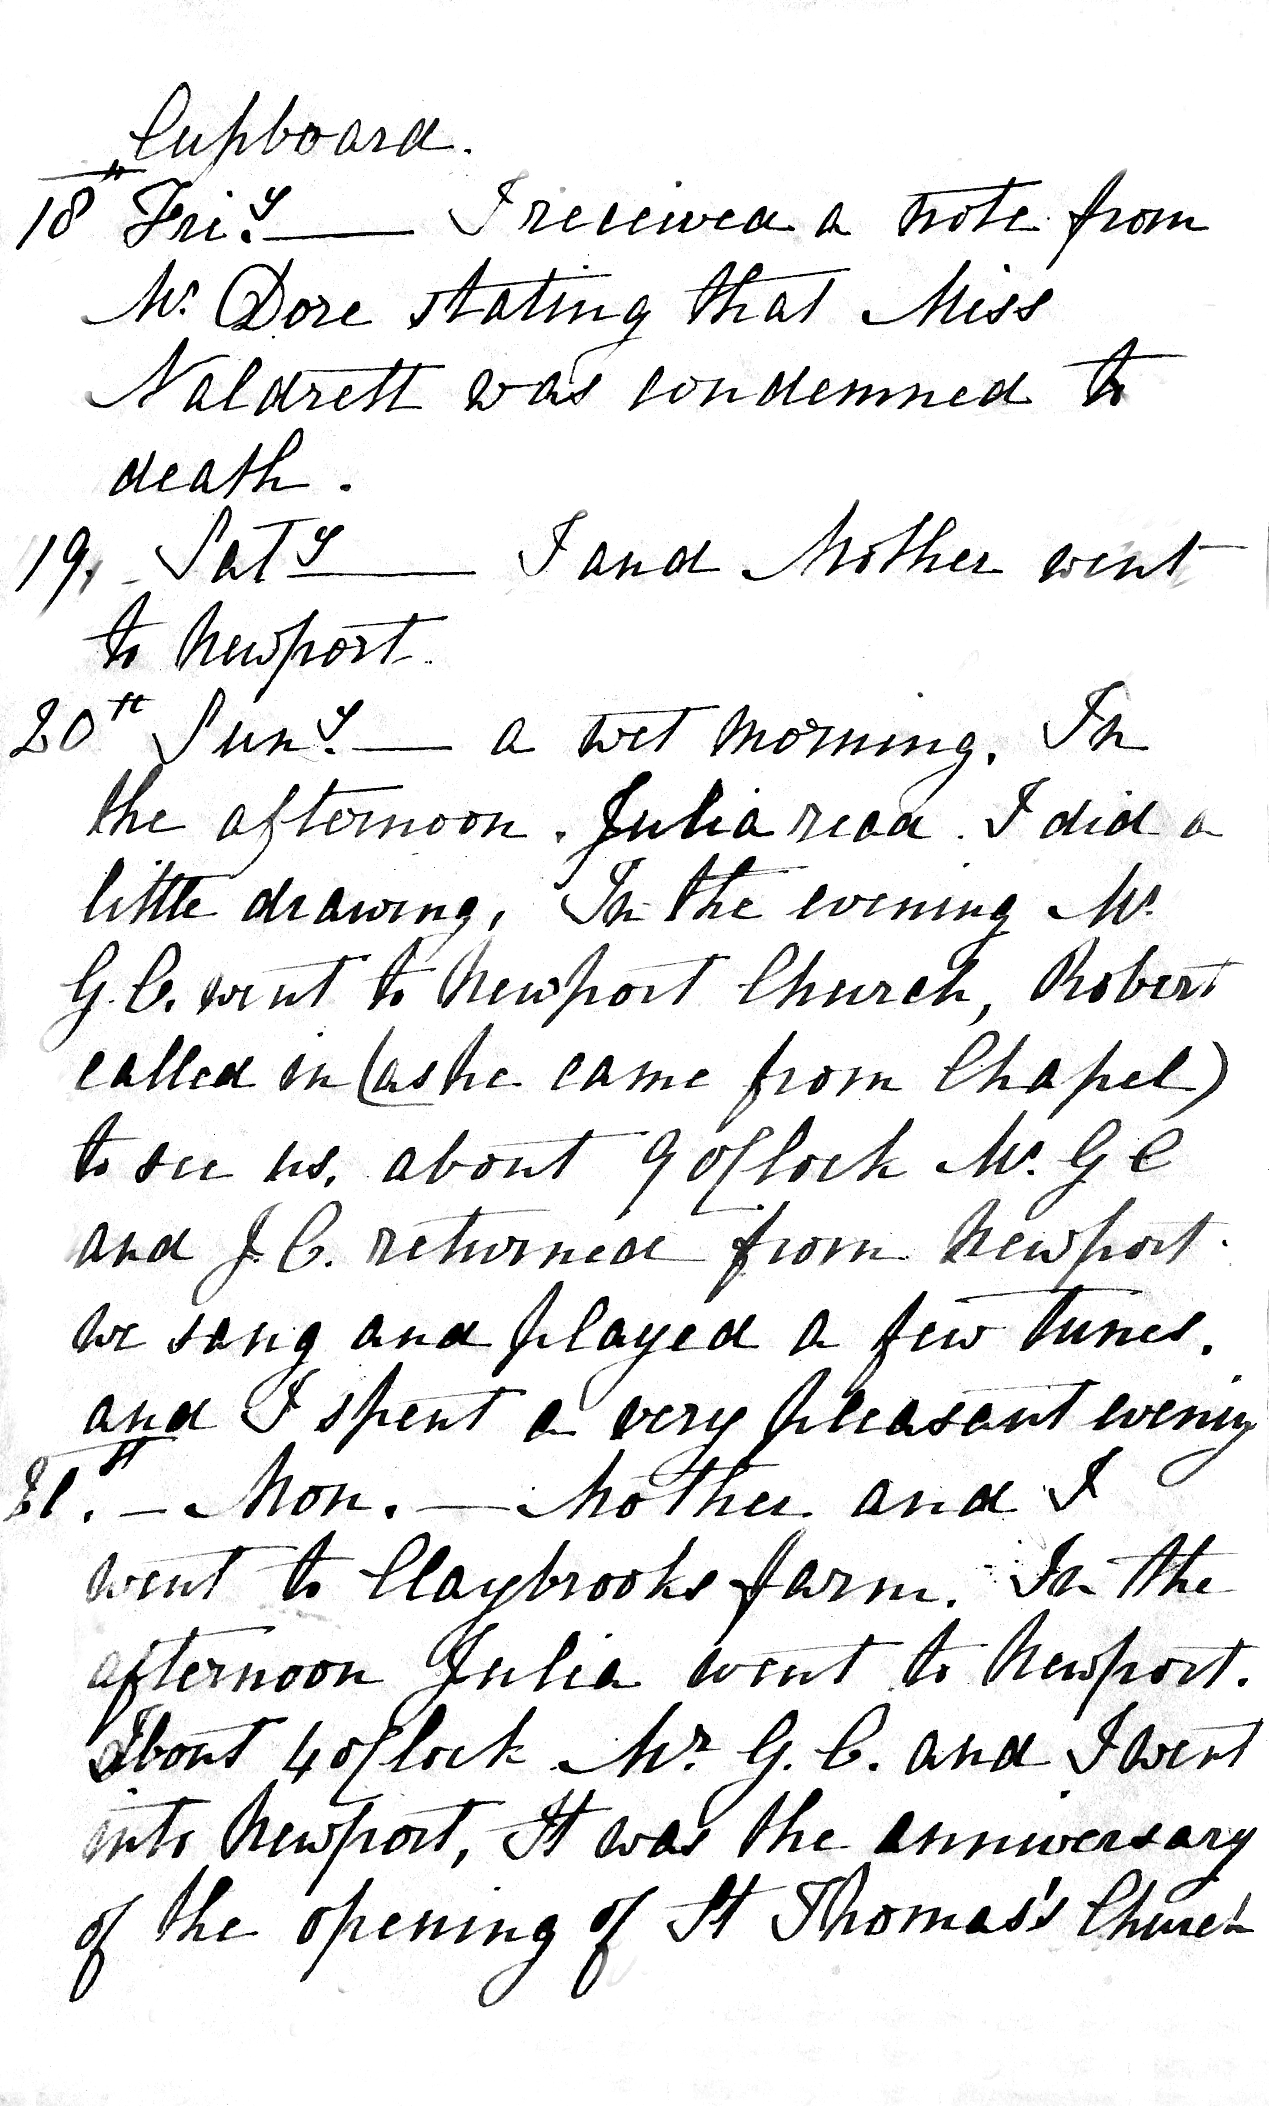 Cupboard.
18th Fri.y — I received a note from
Mr. Dore stating that Miss
Naldrett was condemned to
death.
19, Saty — I and Mother went
to Newport.
20th Sun.y — a wet morning. In
the afternoon. Julia read. I did a
little drawing, In the evening Mr.
G. C. went to Newport Church, Robert
called in (as he came from Chapel)
to see us. about 9 oClock Mr. G C
and J. C. returned from Newport.
we sang and played a few tunes.
and I spent a very pleasant evening
21st. — Mon. — Mother and I
went to Claybrooks farm. In the
afternoon Julia went to Newport.
About 4 oClock Mr G. C. and I went
into Newport, It was the anniversary
of the opening of St Thomas's Church